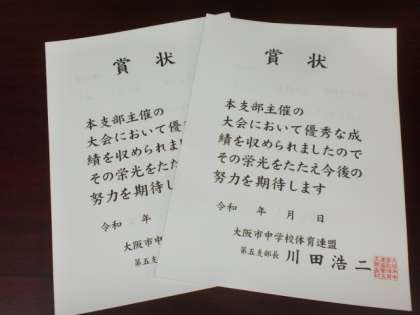 賞状
本支部主催の
大会において優秀
績を収められまし
その栄光をたたえ
努力を期待します
令和 年
大阪市中学
第五支部
賞状
本支部主催の
大会において優秀な成
績を収められましたので
その栄光をたたえ今後の
努力を期待します
令和 年 月 日
大阪市中学校体育連盟
第五支部長 川田浩二